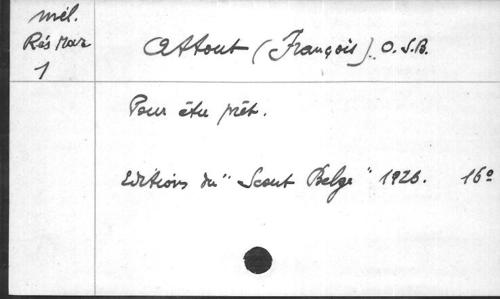 mél.
Rés Mar
1
Attout (François). O.S.B.
Pour être prêt.
Editions du "Scout Belge" 1926. 16º